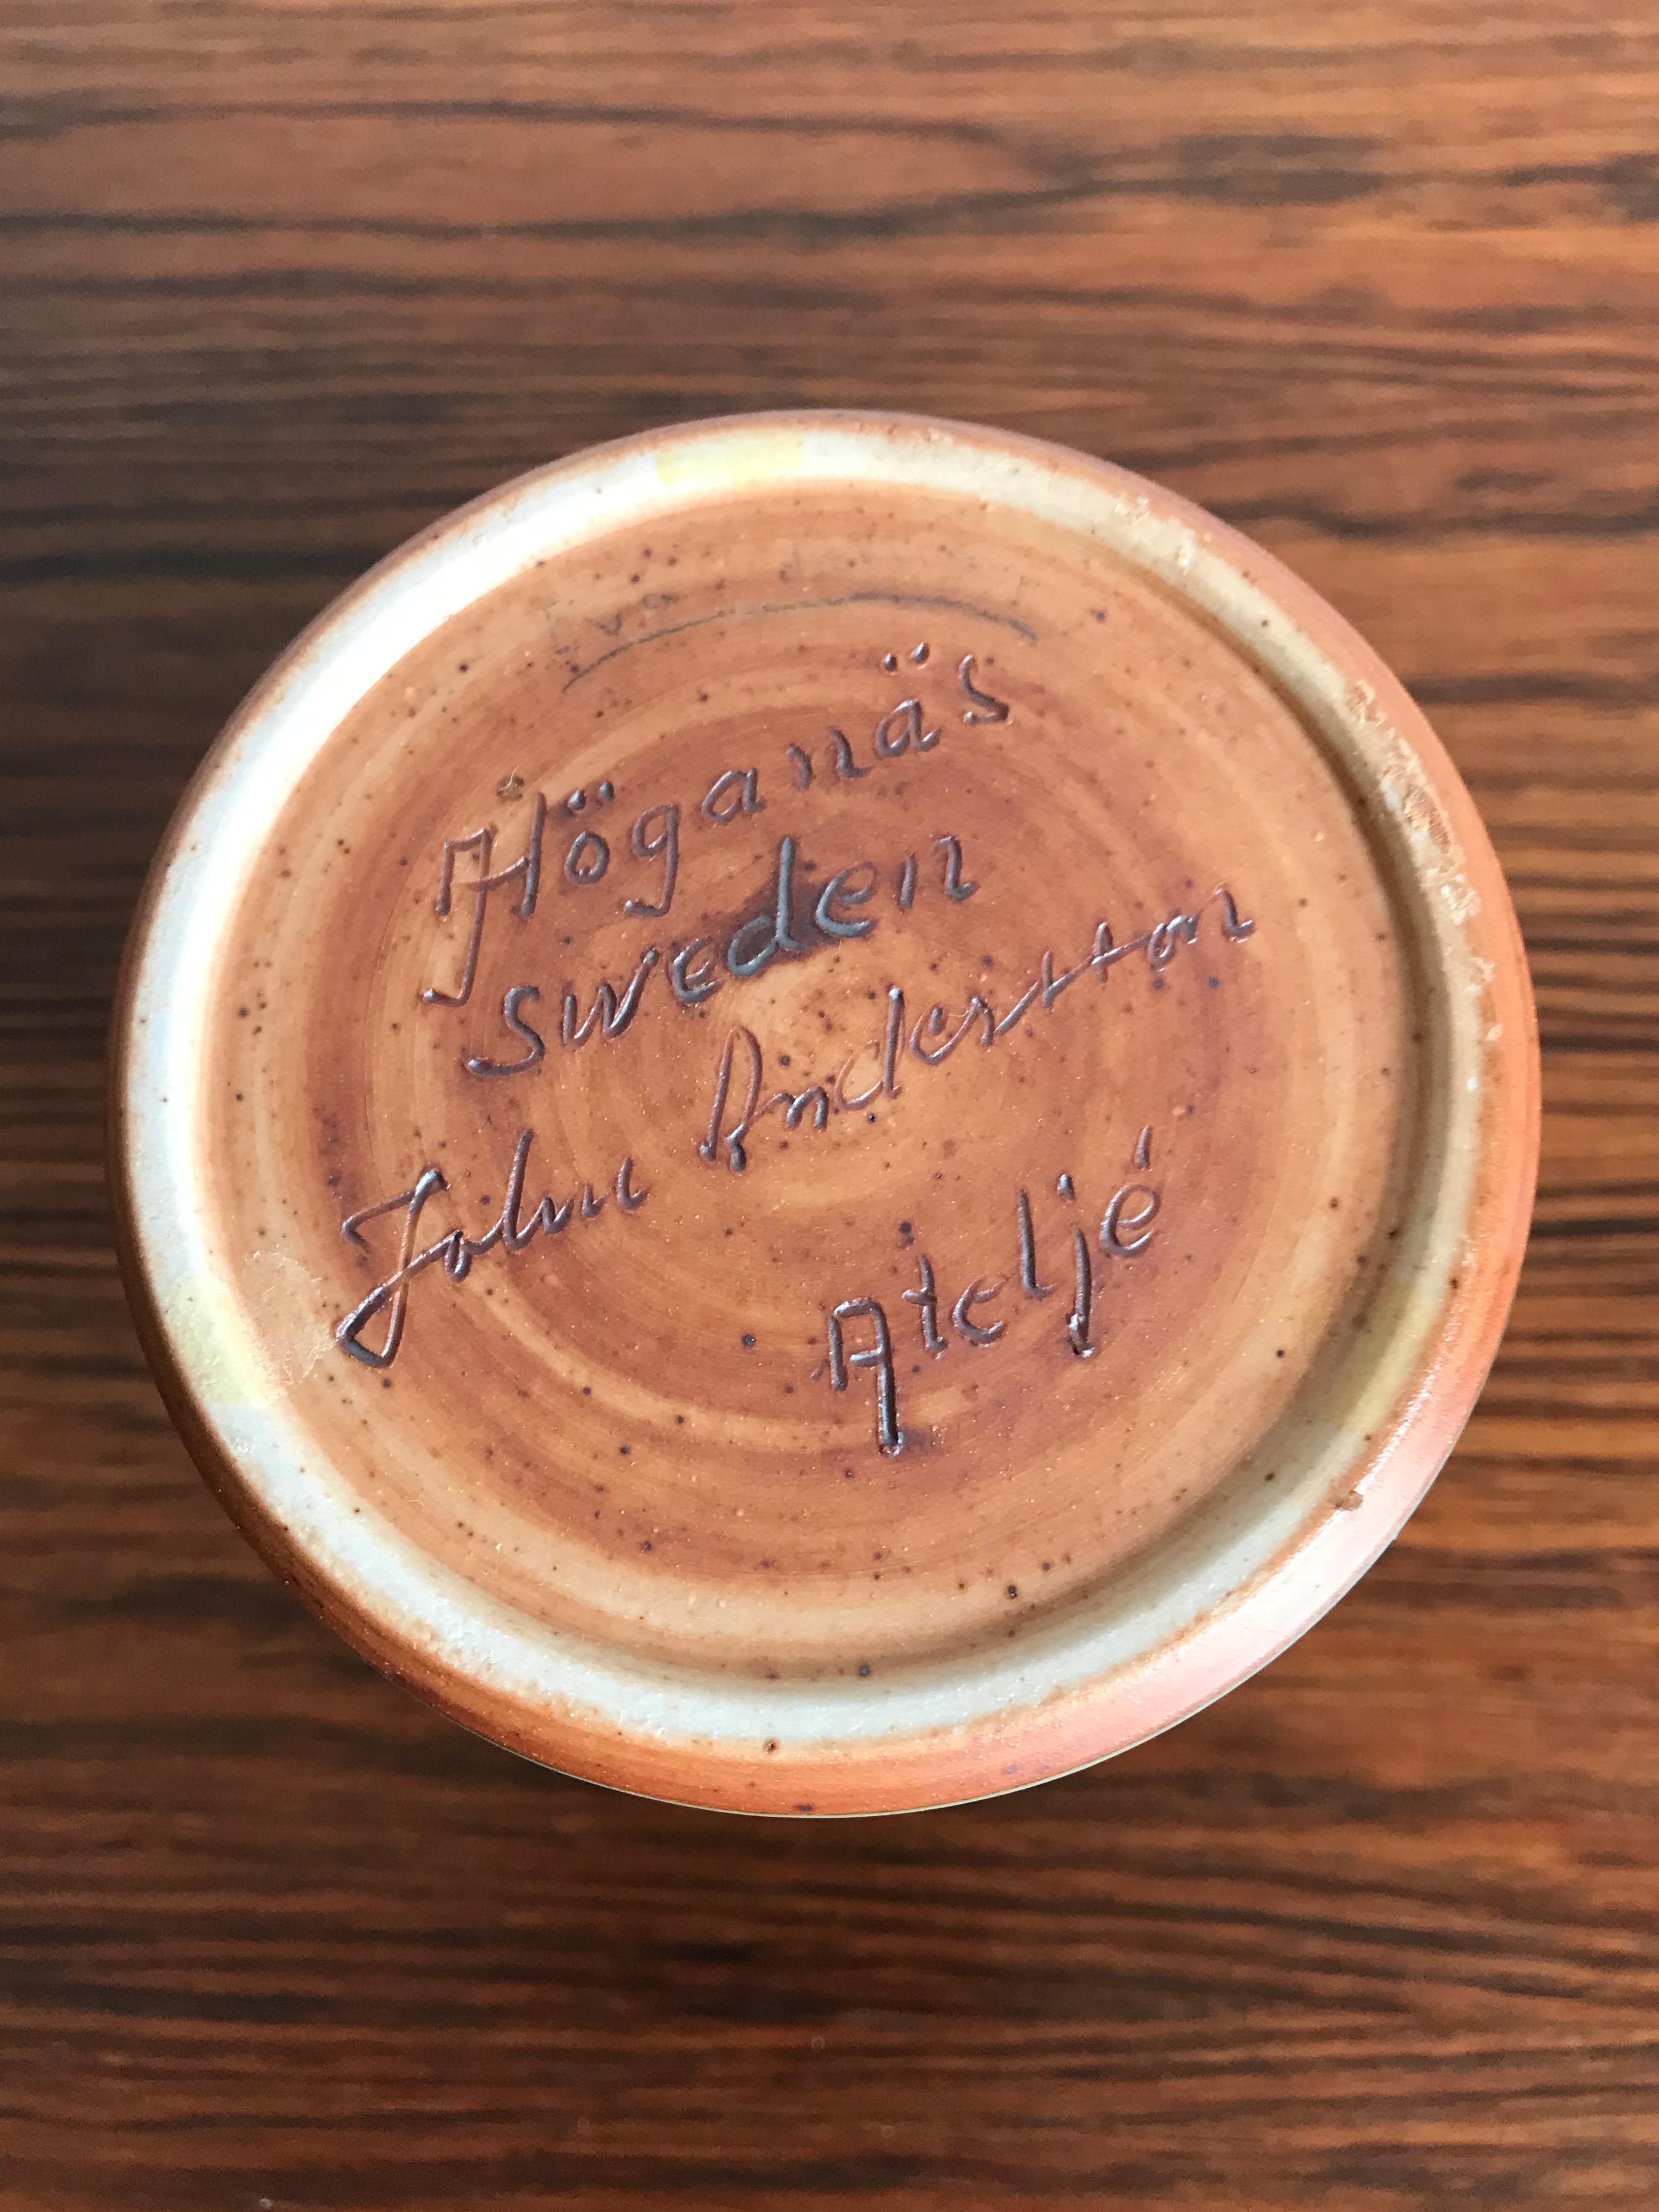 Höganäs
Sweden
John Andersson
Ateljé